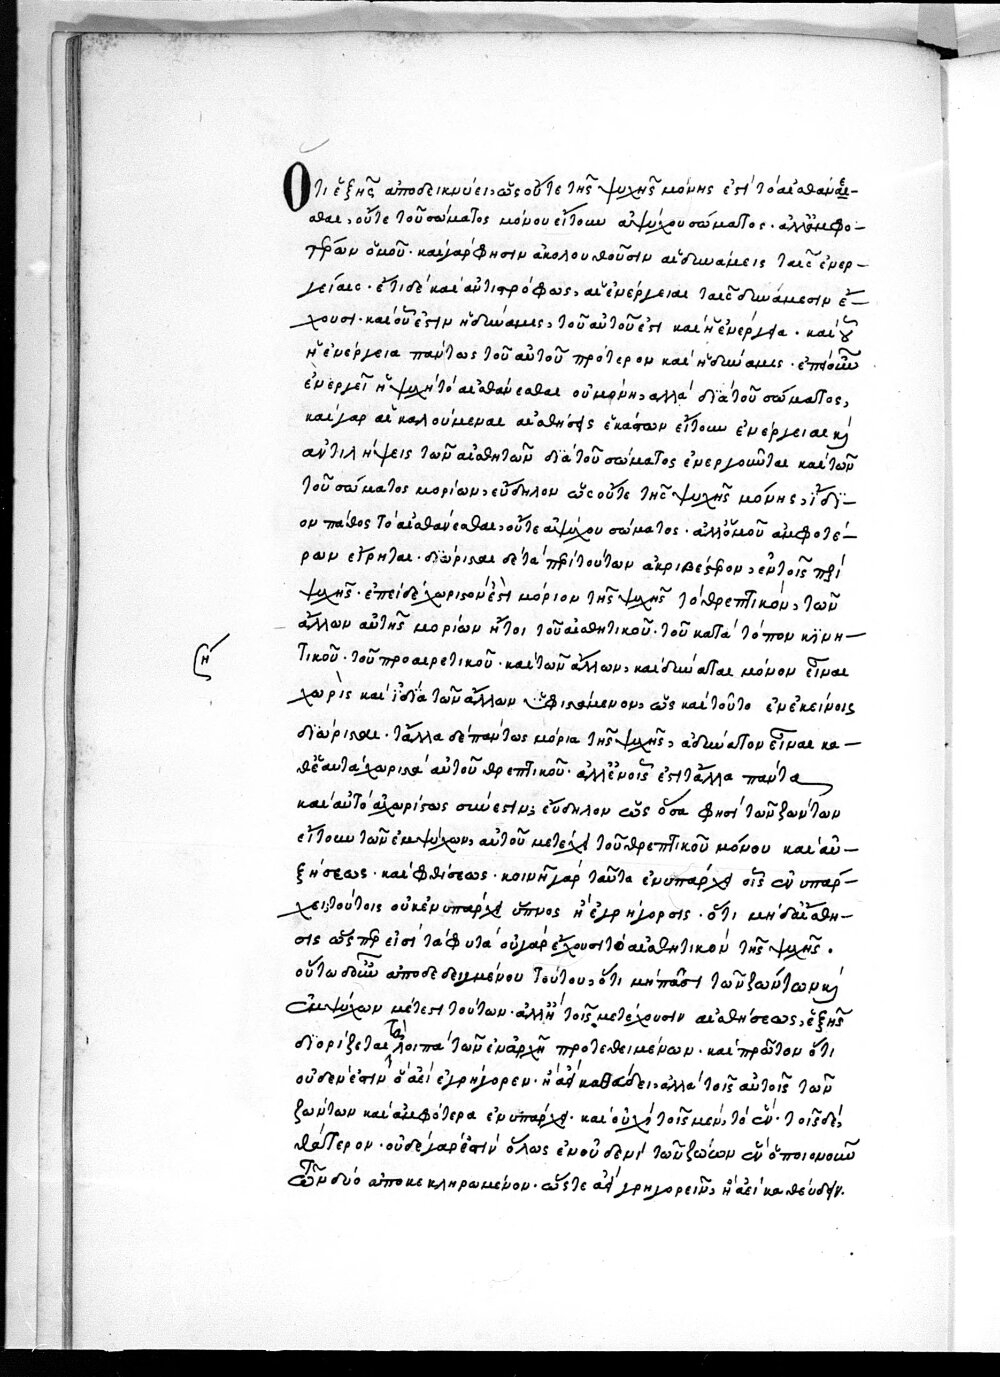 Ὅτι ἑξῆς ἀποδεικνύει, ὡς οὔτε τῆς ψυχῆς μόνης ἐστὶ τὸ αἰσθάνεσ-
θαι, οὔτε τοῦ σώματος μόνου εἴτουν ἀψύχου σώματος· ἀλλ' ἀμφο-
τέρων ὁμοῦ· καὶ γάρ φησιν ἀκολουθοῦσιν αἱ δυνάμεις ταῖς ἐνερ-
γείαις· ἔτι δὲ καὶ ἀντιστρόφως, αἱ ἐνέργειαι ταῖς δυνάμεσιν ἕ-
χουσι· καὶ οὗ ἐστιν ἡ δύναμις, τοῦ αὐτοῦ ἐστι καὶ ἡ ἐνέργεια· καὶ οὗ
ἡ ἐνέργεια πάντως τοῦ αὐτοῦ πρότερον καὶ ἡ δύναμις· ἐπεὶ οὖν
ἐνεργεῖ ἡ ψυχὴ τὸ αἰσθάνεσθαι οὐ μόνη, ἀλλὰ διὰ τοῦ σώματος,
καὶ γὰρ αἱ καλούμεναι αἰσθήσεις ἑκάστων εἴτουν ἐνέργειαι κὶ
ἀντιλήψεις τῶν αἰσθητῶν διὰ τοῦ σώματος ἐνεργοῦνται καὶ τῶν
τοῦ σώματος μορίων, εὔδηλον ὡς οὔτε τῆς ψυχῆς μόνης, ἴδι-
ον πάθος τὸ αἰσθάνεσθαι, οὔτε ἀψύχου σώματος· ἀλλ' ὁμοῦ ἀμφοτέ-
ρων εἴρηται· διώρισται δὲ τὰ περὶ τούτων ἀκριβέστερον, ἐν τοῖς περὶ
ψυχῆς· ἐπεὶ δὲ χωριστόν ἐστὶ μόριον τῆς ψυχῆς τὸ θρεπτικόν, τῶν
ἄλλων αὐτῆς μορίων ἤτοι τοῦ αἰσθητικοῦ· τοῦ κατὰ τόπον κινη-
τικοῦ· τοῦ προαιρετικοῦ· καὶ τῶν ἄλλων, καὶ δύναται μόνον εἶναι
χωρὶς καὶ ἰδίᾳ τῶν ἄλλων ὑφιστάμενον, ὡς καὶ τοῦτο ἐν ἐκείνοις
διώρισται· τἄλλα δὲ πάντως μόρια τῆς ψυχῆς, ἀδύνατον εἶναι κα-
θ' ἑαυτὰ χωριστὰ αὐτοῦ θρεπτικοῦ· ἀλλ' ἐν οἷς ἐστὶ τἄλλα πάντα
καὶ αὐτὸ ἀχωρίστως σύνεστιν· εὔδηλον ὡς ὅσα φησὶ τῶν ζώντων
εἴτουν τῶν ἐμψύχων, αὐτοῦ μετέχει τοῦ θρεπτικοῦ μόνου καὶ αὐ-
ξήσεως· καὶ φθίσεως· κοινῇ γὰρ ταῦτα ἐνυπάρχει οἷς ἂν ὑπάρ-
χει, τούτοις οὐκ ἐνυπάρχει ὕπνος ἢ ἐγρήγορσις· ὅτι μὴ δὲ αἴσθη-
σις ὥσπερ εἰσὶ τὰ φυτά· οὐ γὰρ ἔχουσι τὸ αἰσθητικὸν τῆς ψυχῆς.
οὕτω δ' οὖν ἀποδεδειγμένου τούτου, ὅτι μὴ πᾶσι τῶν ζώντων κὶ
ἐμψύχων μέτεστι τούτων· ἀλλ' ἢ τοῖς μετέχουσιν αἰσθήσεως, ἑξῆς
διορίζεται τὰ λοιπὰ τῶν ἐν ἀρχῇ προτεθειμένων· καὶ πρῶτον ὅτι
οὐδέν ἐστιν ὃ ἀεὶ ἐγρήγορεν· ἢ ἀεὶ καθεύδει, ἀλλὰ τοῖς αὐτοῖς τῶν
ζώντων καὶ ἀμφότερα ἐνυπάρχει· καὶ οὐχὶ τοῖς μὲν, τὸ ἕν· τοῖς δὲ,
θάτερον· οὐδὲ γάρ ἐστιν ὅλως ἐν οὐδενὶ τῶν ζώων ἓν ὁποιονοῦν
τῶν δύο ἀποκεκληρωμένον· ὥστε ἀεὶ γρηγορεῖν, ἢ ἀεὶ καθεύδειν.